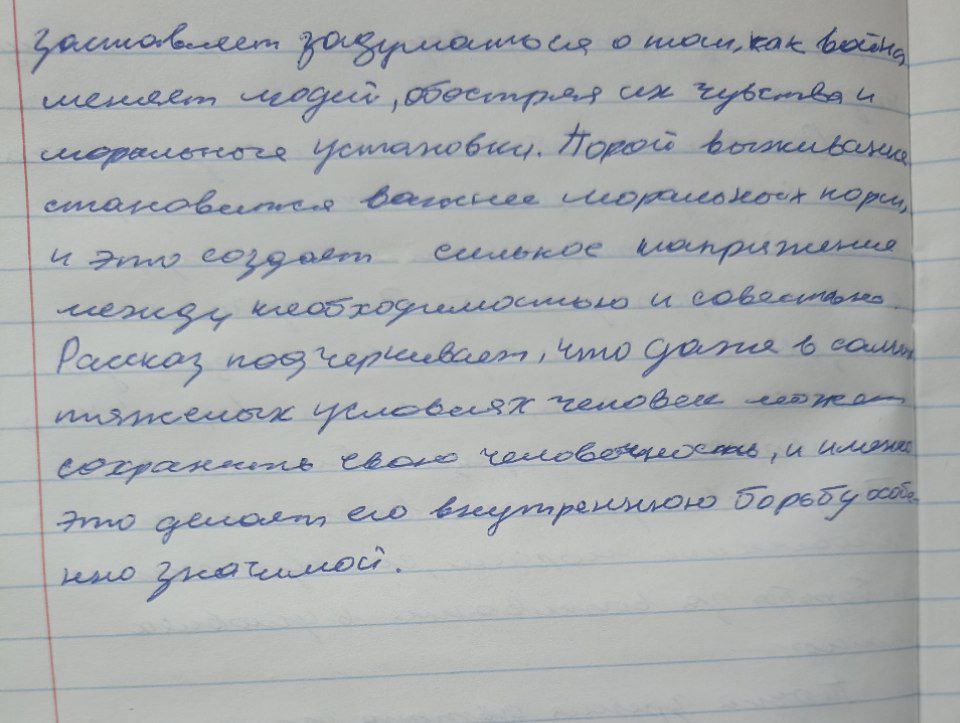 заставляет задуматься о том, как война
меняет людей, обостряя их чувства и
моральные установки. Порой выживание
становится важнее моральных норм,
и это создает сильное напряжение
между необходимостью и совестью.
Рассказ подчеркивает, что даже в самых
тяжелых условиях человек может
сохранить свою человечность, и именно
это делает его внутреннюю борьбу особе-
нно значимой.